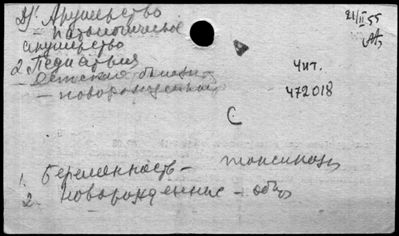 IV. Акушерство
— патологическое
акушерство
2. Педиатрия
— детские болезни
— новорожденных
21/II 55
Чит.
472018
С
1. Беременность — токсикозы
2. Новорожденные — общ